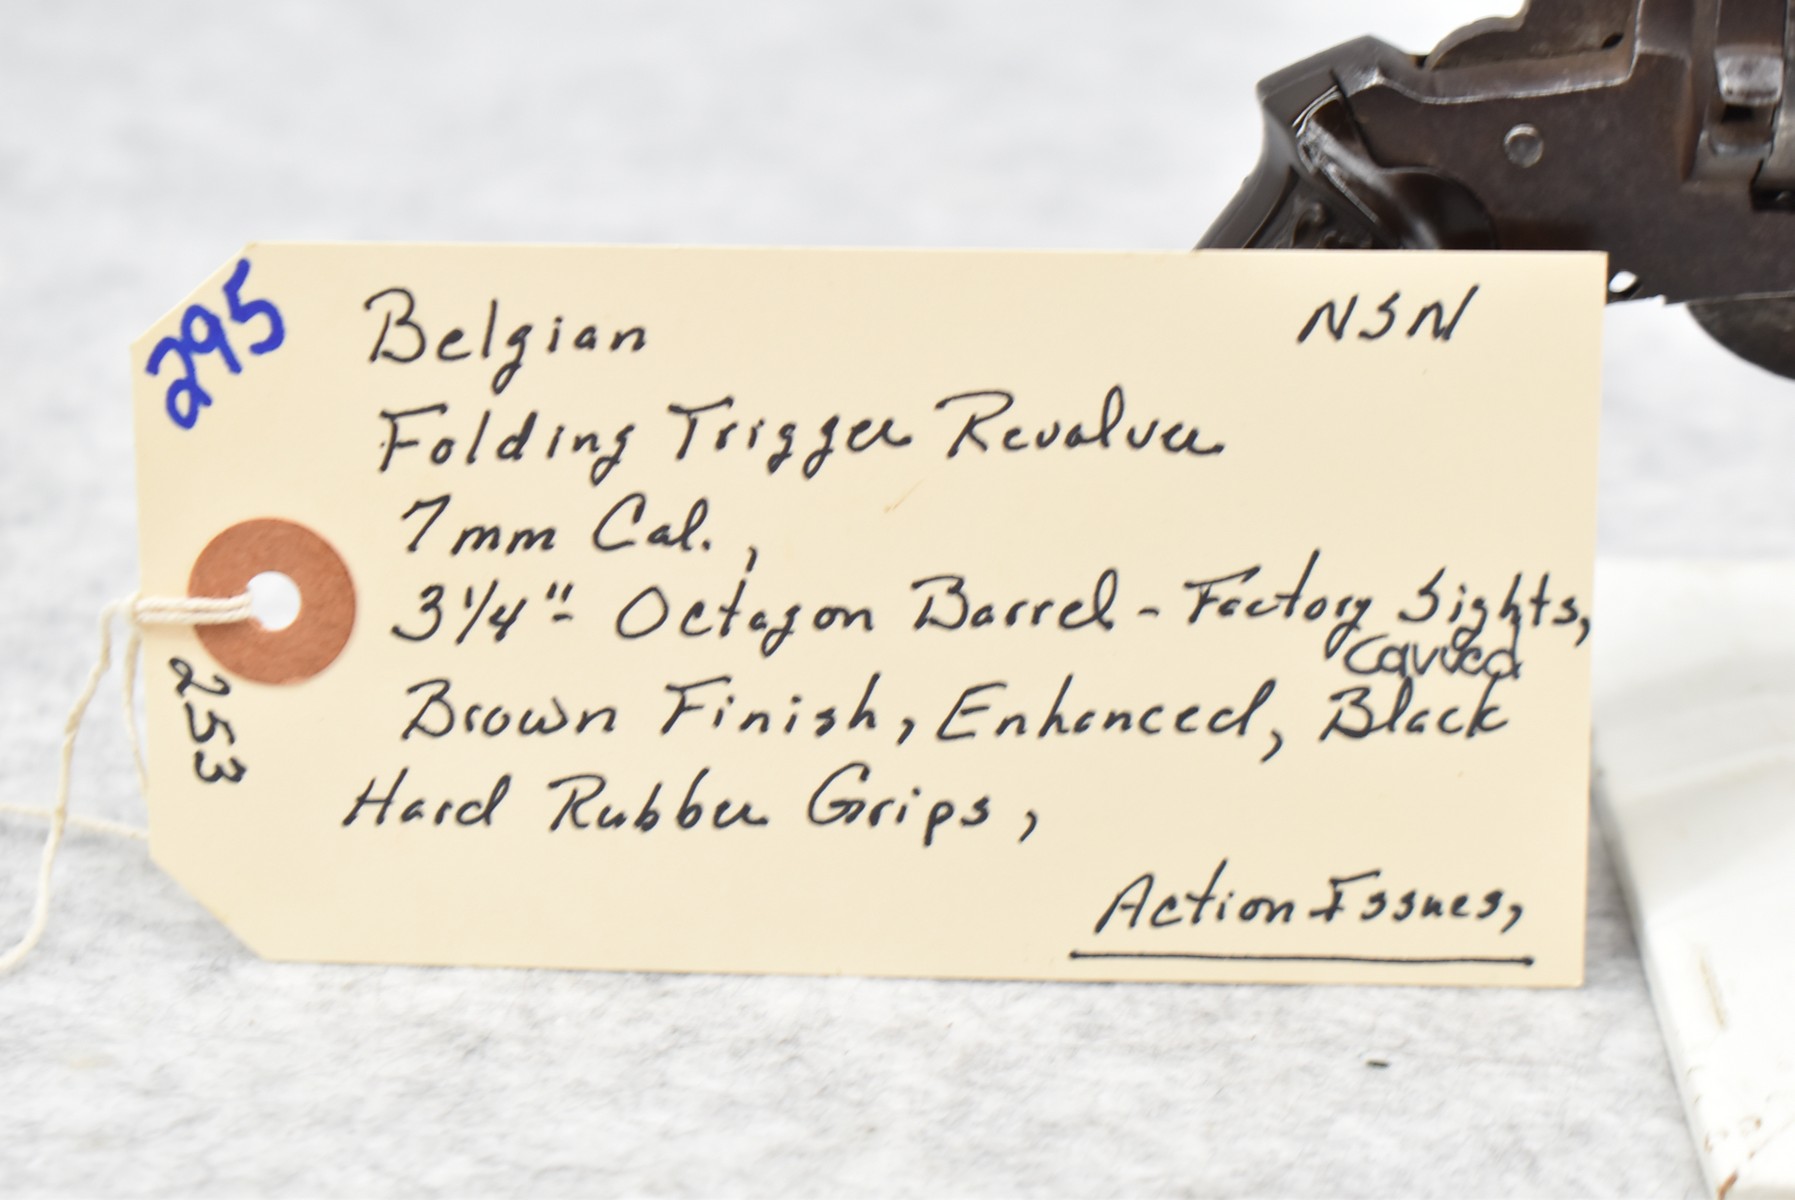 295
Belgian NSN
Folding Trigger Revolver
7mm Cal.,
3 1/4"- Octagon Barrel - Factory Sights,
Carved
Brown Finish, Enhanced, Black
Hard Rubber Grips,
Action Issues,
253